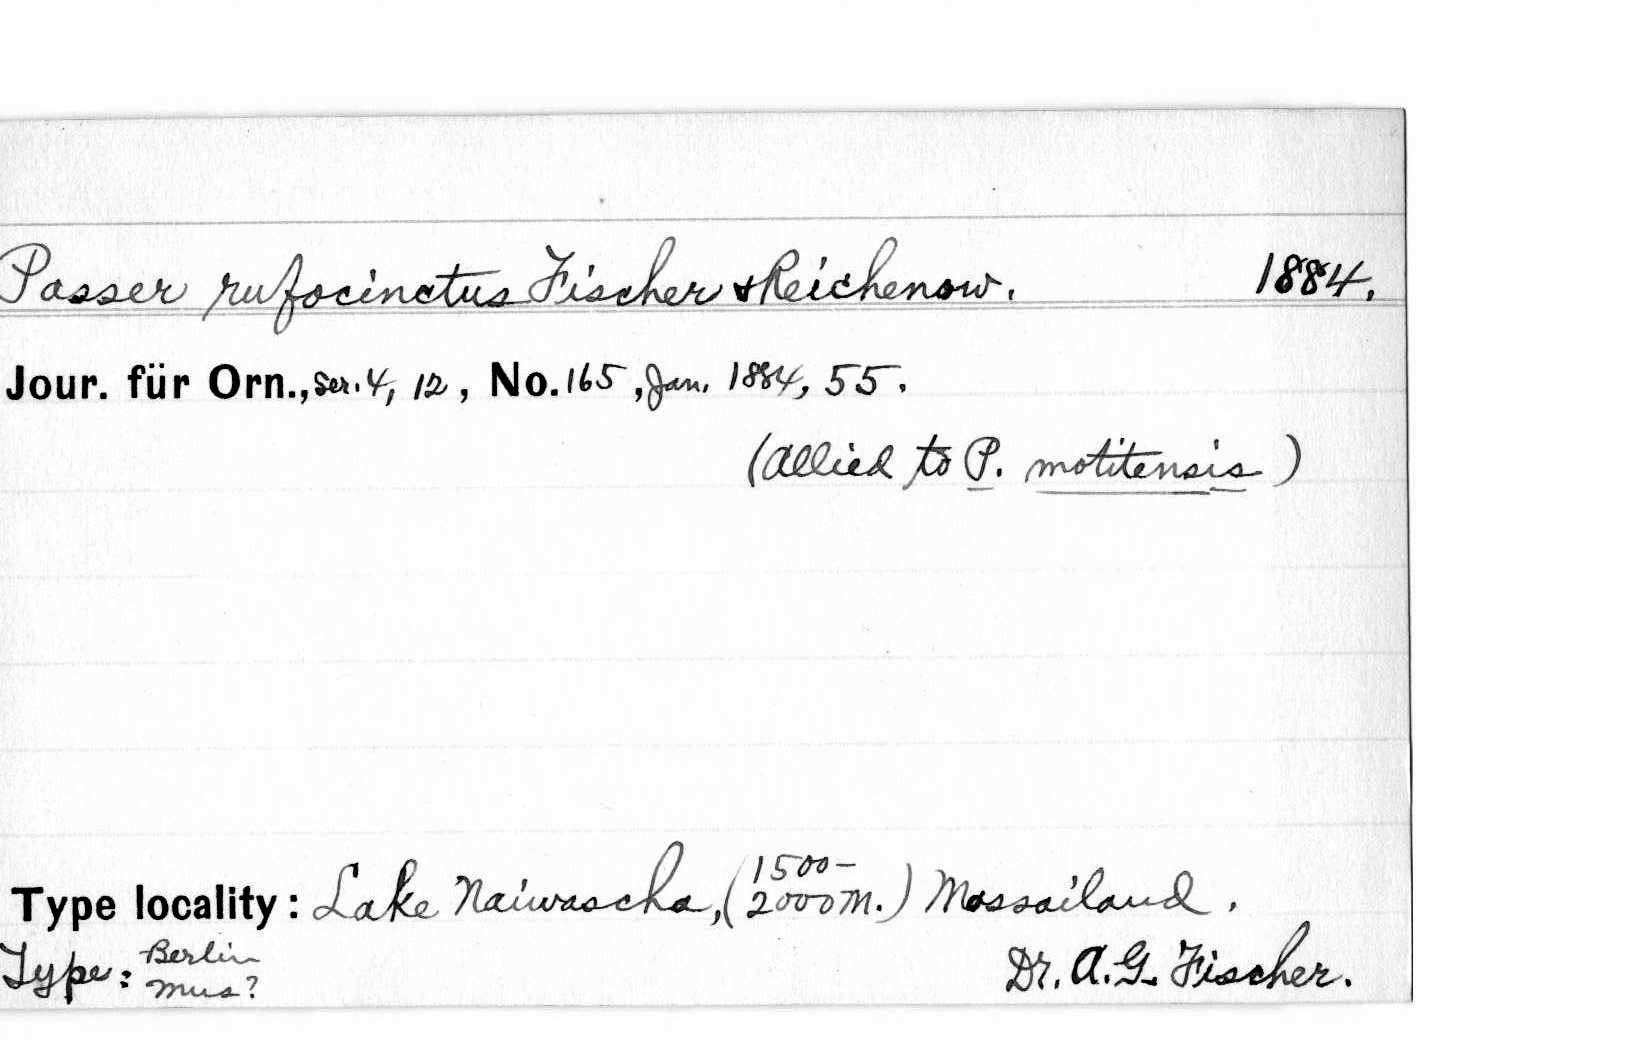 Passer rufocinctus Fischer & Reichenow. 1884.
Jour. für Orn., ser. 4, 12, No. 165, Jan. 1884, 55.
(allied to P. motitensis)
Type locality: Lake Naiwascha, (1500-2000 m.) Massailand.
Type: Berlin Mus? Dr. A. G. Fischer.